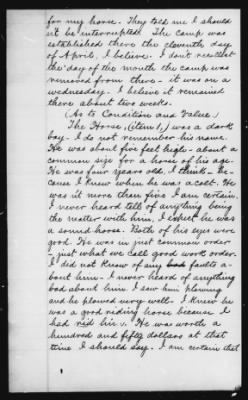 for my horse. They told me I should
n't be interrupted. The camp was
established there the eleventh day
of April, I believe. I don't recollect
the day of the month the camp was
removed from there - it was on a
wednesday. I believe it remained
there about two weeks.
(As to Condition and Value.)
The Horse, (item 1,) was a dark
bay. I do not remember his name.
He was about five feet high - about a
common size for a horse of his age.
He was four years old, I think - be-
cause I knew when he was a colt. He
was n't more than five I am certain.
I never heard tell of anything being
the matter with him. I expect he was
a sound horse. Both of his eyes were
good. He was in just common order
- just what we call good work order.
I did not know of any bad faults a-
bout him - I never heard of anything
bad about him. I saw him plowing
and he plowed very well. I knew he
was a good riding horse because I
had rid him. He was worth a
hundred and fifty dollars at that
time I should say. I am certain that